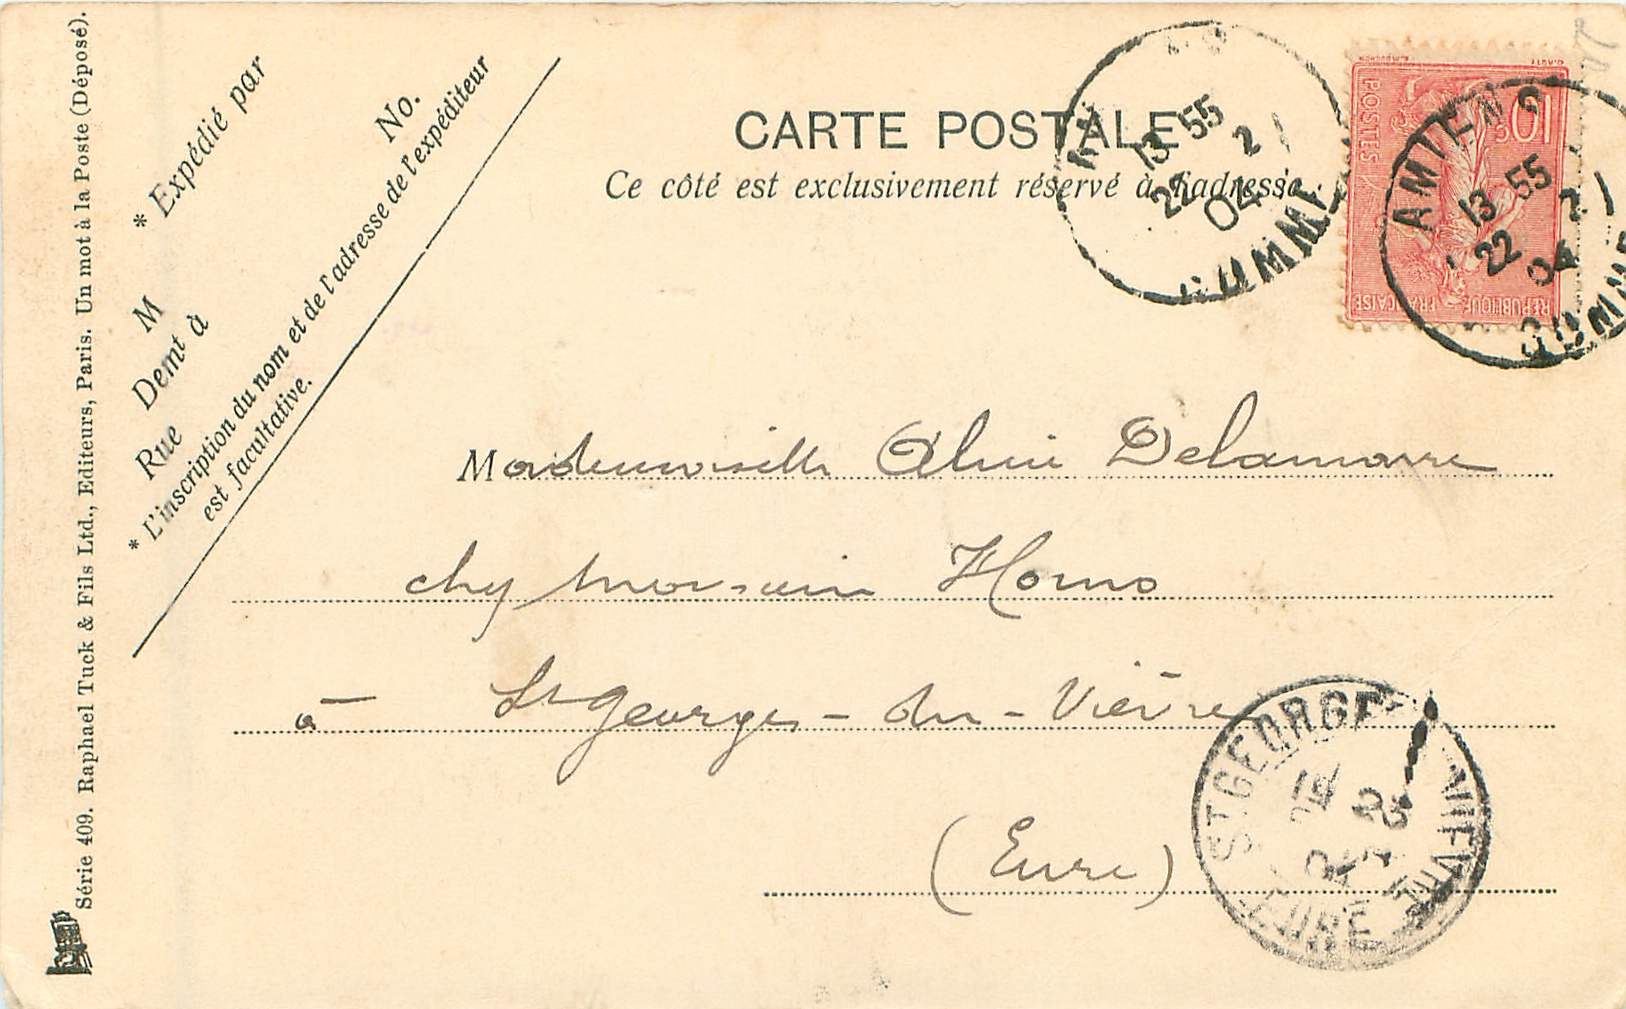 Série 409. Raphael Tuck & Fils Ltd., Editeurs, Paris. Un mot à la Poste (Déposé).
* Expédié par
M
No.
Demt à
Rue
* L'inscription du nom et de l'adresse de l'expéditeur
est facultative.
CARTE POSTALE
Ce côté est exclusivement réservé à l'adresse.
13 55
22 2
04
SOMME
O. ROTY
E. MOUCHON
10c
POSTES
REPUBLIQUE FRANÇAISE
AMIENS
13 55
22 2
04
SOMME
Mademoiselle Aline Delamarre
chez monsieur Homo
à St Georges-du-Vièvre
(Eure)
ST GEORGES DU VIEVRE
EURE